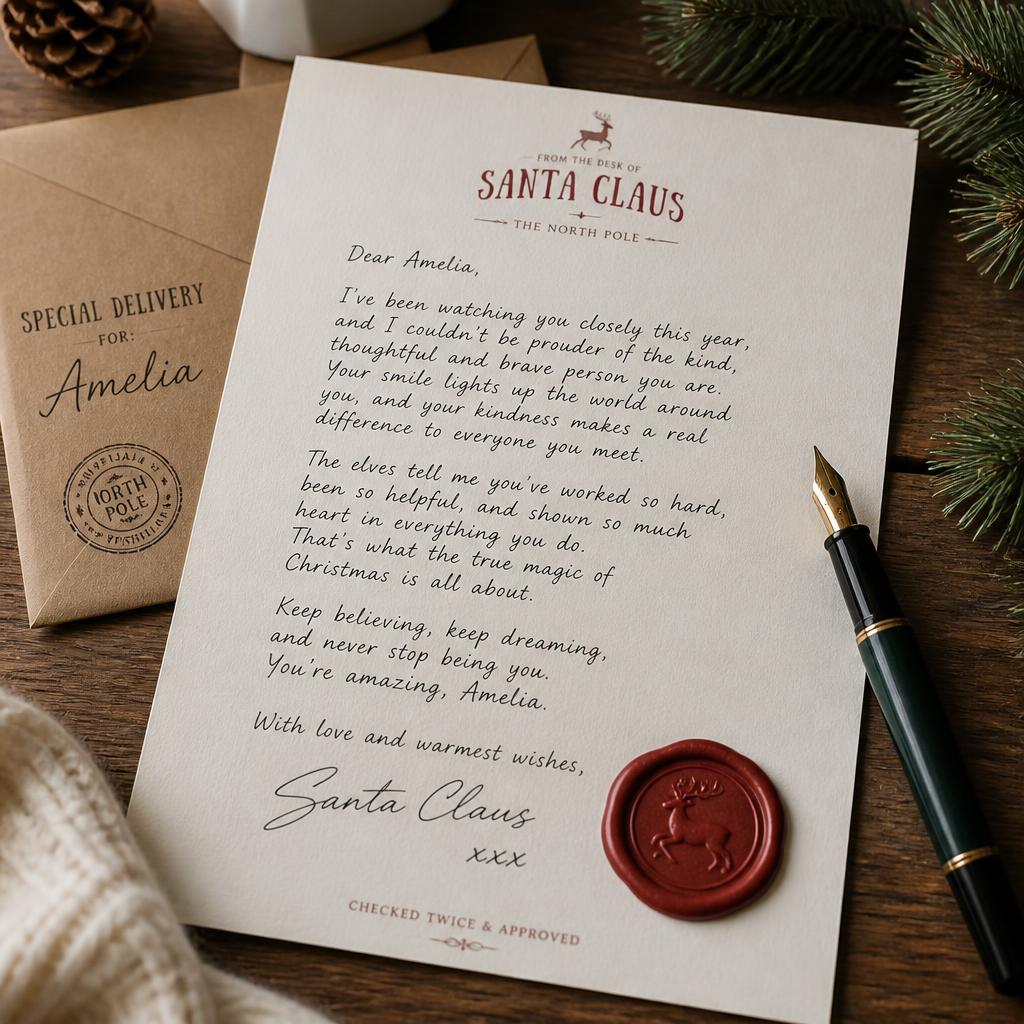 FROM THE DESK OF
SANTA CLAUS
THE NORTH POLE
Dear Amelia,
I've been watching you closely this year,
and I couldn't be prouder of the kind,
thoughtful and brave person you are.
Your smile lights up the world around
you, and your kindness makes a real
difference to everyone you meet.
The elves tell me you've worked so hard,
been so helpful, and shown so much
heart in everything you do.
That's what the true magic of
Christmas is all about.
Keep believing, keep dreaming,
and never stop being you.
You're amazing, Amelia.
With love and warmest wishes,
Santa Claus
xxx
CHECKED TWICE & APPROVED
SPECIAL DELIVERY
FOR:
Amelia
POLE